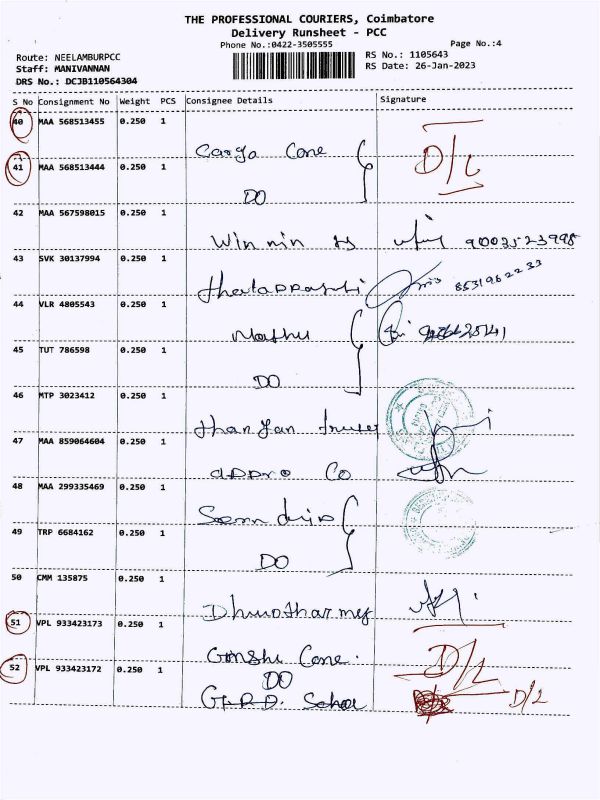 THE PROFESSIONAL COURIERS, Coimbatore
Delivery Runsheet - PCC
Phone No.:0422-3505555
Page No.:4
Route: NEELAMBURPCC
RS No.: 1105643
Staff: MANIVANNAN
RS Date: 26-Jan-2023
DRS No.: DCJB110564304
S No Consignment No Weight PCS Consignee Details Signature
40 MAA 568513455 0.250 1
Cargo Cone
D/L
41 MAA 568513444 0.250 1
DO
42 MAA 567598015 0.250 1
Win nin
43 SVK 30137994 0.250 1
8531962233
44 VLR 4805543 0.250 1
Mathu
45 TUT 786598 0.250 1
DO
46 MTP 3023412 0.250 1
47 MAA 859064604 0.250 1
appro Co
48 MAA 299335469 0.250 1
49 TRP 6684162 0.250 1
DO
50 CMM 135875 0.250 1
51 VPL 933423173 0.250 1
Cone.
D/L
52 VPL 933423172 0.250 1
DO
D/L